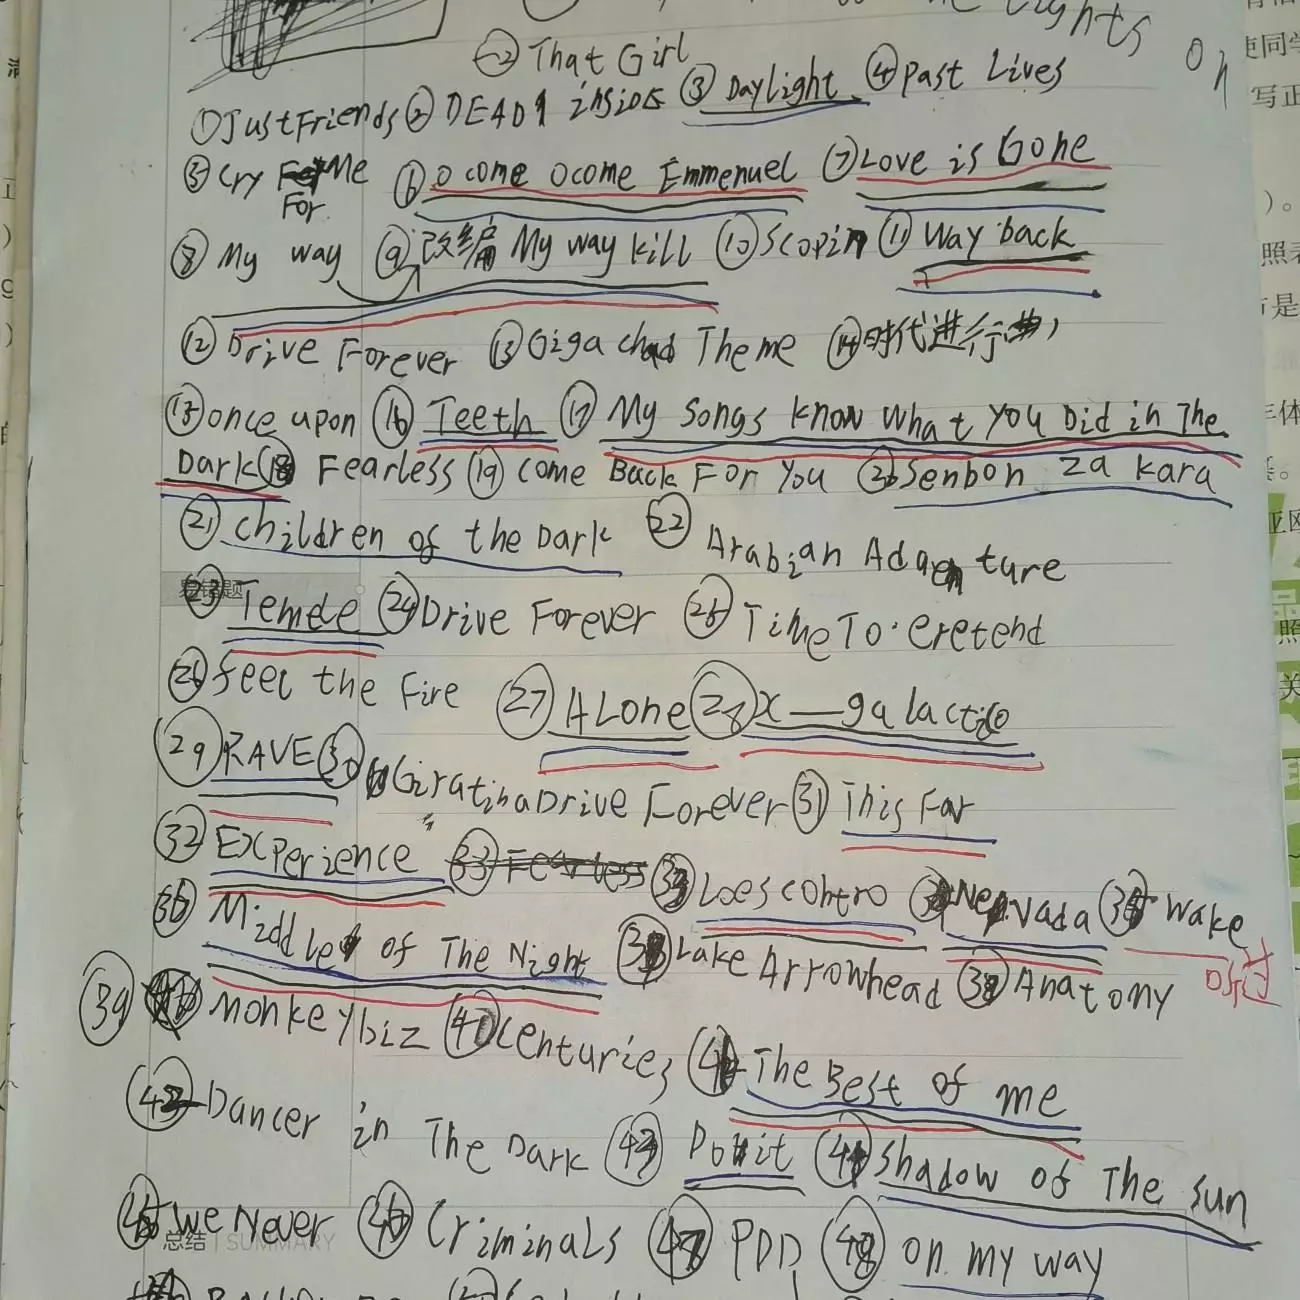 Lights On
That Girl
①Just Friends ② DEAD inside ③ Daylight ④ Past Lives
⑤ Cry For Me ⑥ O come O come Emmenuel ⑦ Love is Gone
⑧ My way ⑨ 改编 My way kill ⑩ Scopin ⑪ Way back
⑫ Drive Forever ⑬ Giga chad Theme ⑭ 时代进行曲
⑮ once upon ⑯ Teeth ⑰ My Songs Know What You Did in The
Dark ⑱ Fearless ⑲ come Back For You ⑳ Senbon za kara
㉑ children of the Dark ㉒ Arabian Adventure
㉓ Temde ㉔ Drive Forever ㉕ Time To Pretend
㉖ feel the Fire ㉗ ALone ㉘ X—galactico
㉙ RAVE ㉚ Giratina Drive Forever ㉛ This Far
㉜ Experience Loescontro Nevada ㉟ Wake
㊱ Middle of The Night Lake Arrowhead ㊳ Anatomy
听过
㊴ Monkeybiz ㊵ Centuries ㊶ The Best of me
㊷ Dancer in The Dark ㊸ Do it ㊹ Shadow of The Sun
㊺ We Never ㊻ Criminals ㊼ PDD ㊽ on my way
总结 | SUMMARY